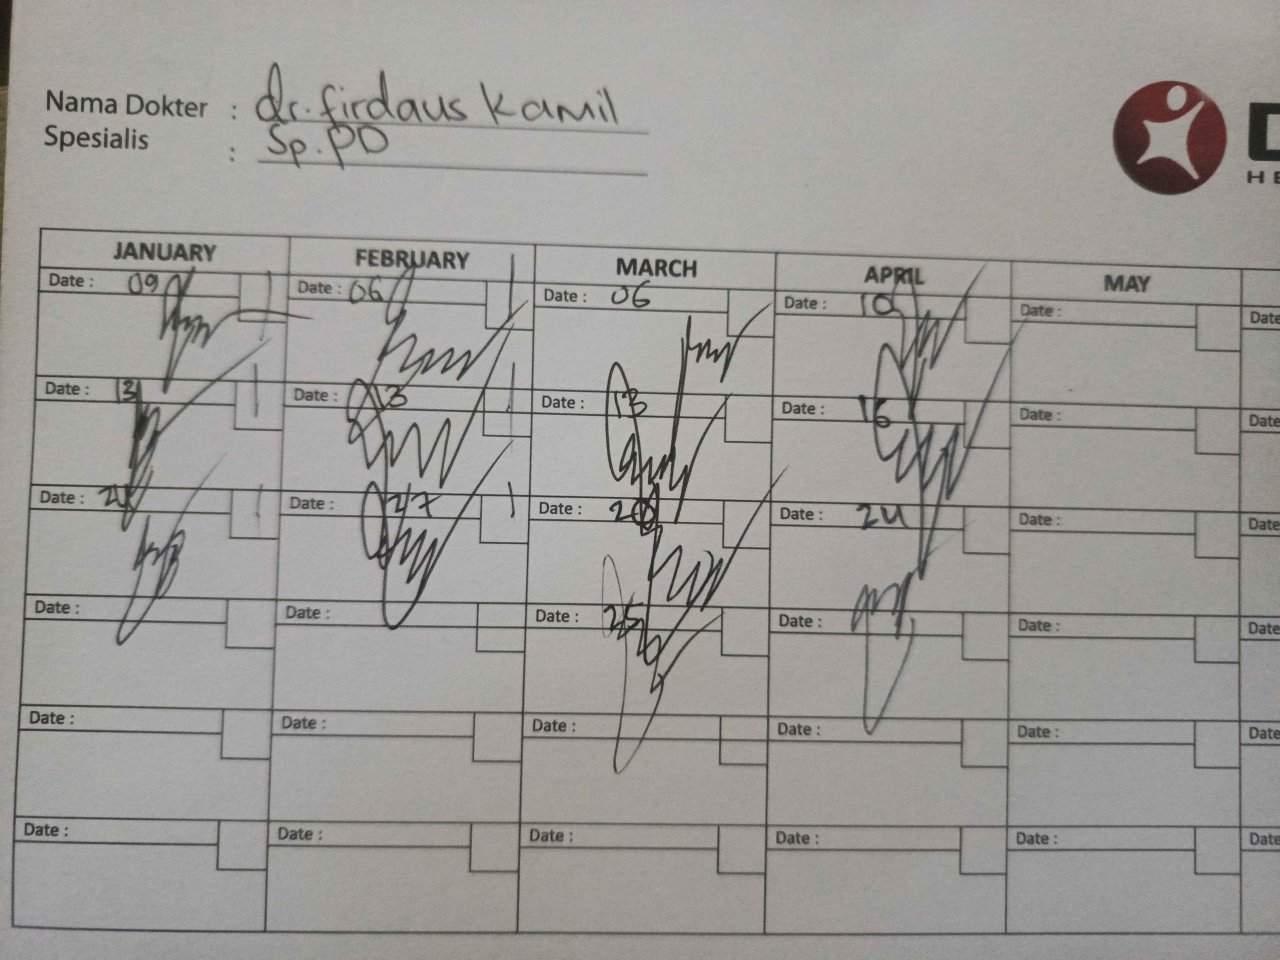 Nama Dokter : dr. firdaus kamil
Spesialis : Sp.PD
D
HE
JANUARY FEBRUARY MARCH APRIL MAY
Date : 09 Date : 06 Date : 06 Date : 10 Date : Date
Date : 13 Date : 13 Date : 13 Date : 16 Date : Date
Date : Date : 27 Date : 20 Date : 24 Date : Date
Date : Date : Date : 25 Date : Date : Date
Date : Date : Date : Date : Date : Date
Date : Date : Date : Date : Date : Date